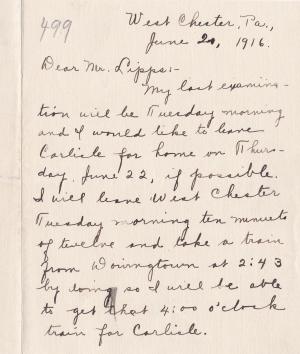 499
West Chester, Pa.,
June 2, 1916.
Dear Mr. Lipps:-
My last examina-
tion will be Tuesday morning
and I would like to leave
Carlisle for home on Thurs-
day, June 22, if possible.
I will leave West Chester
Tuesday morning ten minuets
of twelve and take a train
from Downingtown at 2:43
by doing so I will be able
to get that 4:00 o'clock
train for Carlisle.